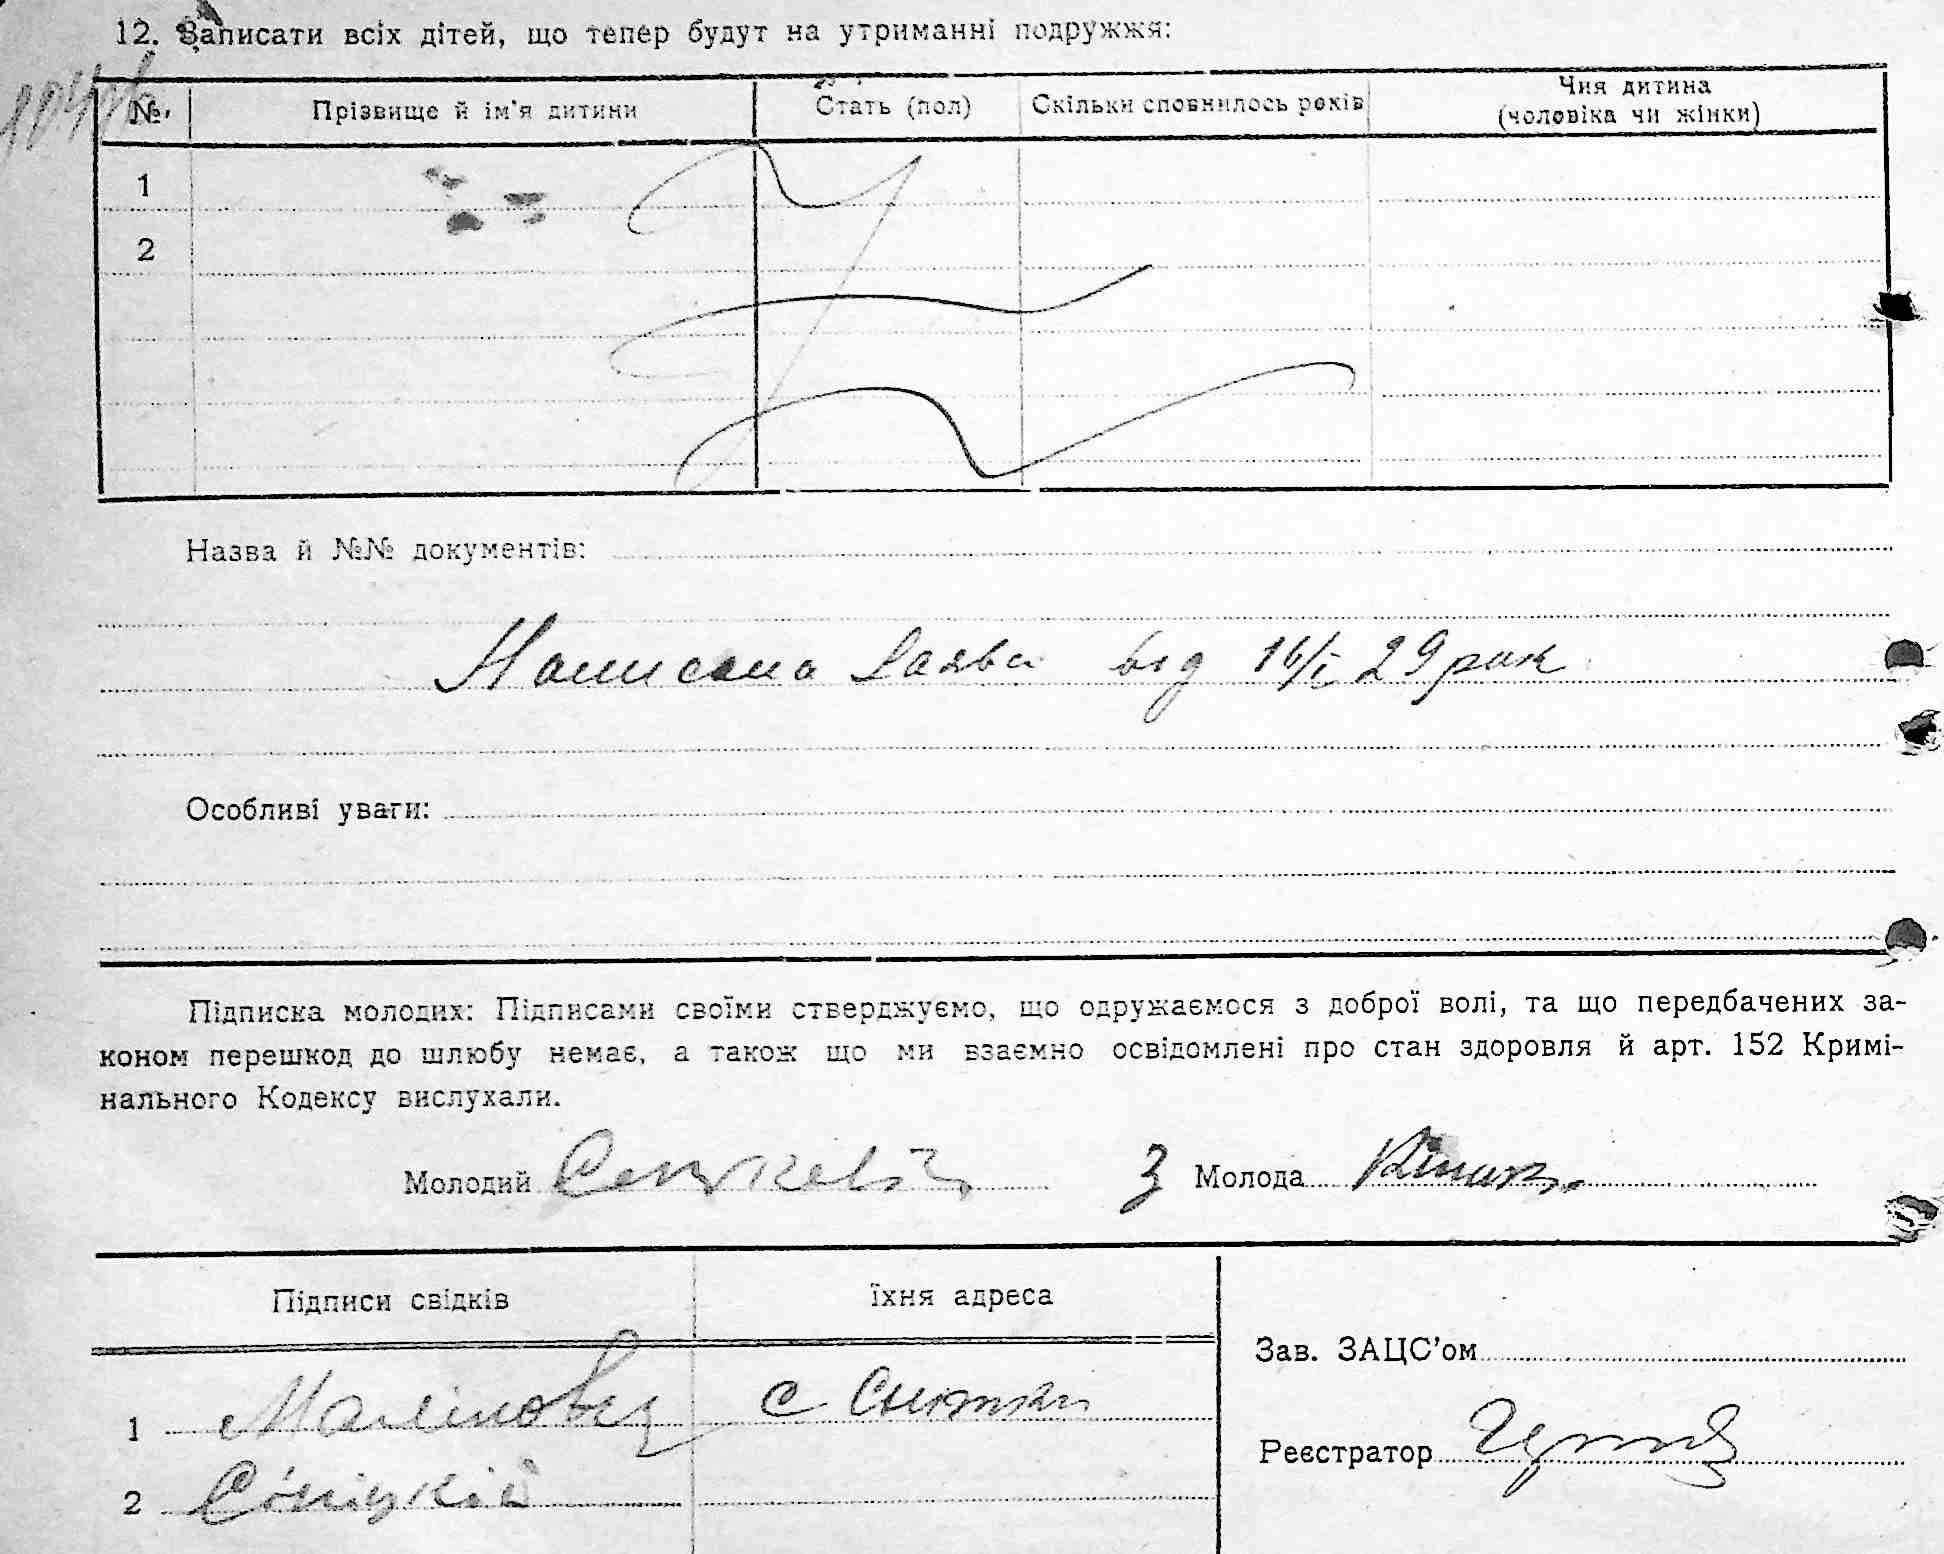 12. Записати всіх дітей, що тепер будут на утриманні подружжя:
№ Прізвище й ім'я дитини Стать (пол) Скільки сповнилось років Чия дитина
(чоловіка чи жінки)
1
2
Назва й №№ документів:
Написана заява від 16/I 29 рок
Особливі уваги:
Підписка молодих: Підписами своїми стверджуємо, що одружаємося з доброї волі, та що передбачених за-
коном перешкод до шлюбу немає, а також що ми взаємно освідомлені про стан здоровля й арт. 152 Кримі-
нального Кодексу вислухали.
Молодий Молода
Підписи свідків їхня адреса
Зав. ЗАЦС'ом
1 с
Реєстратор
2